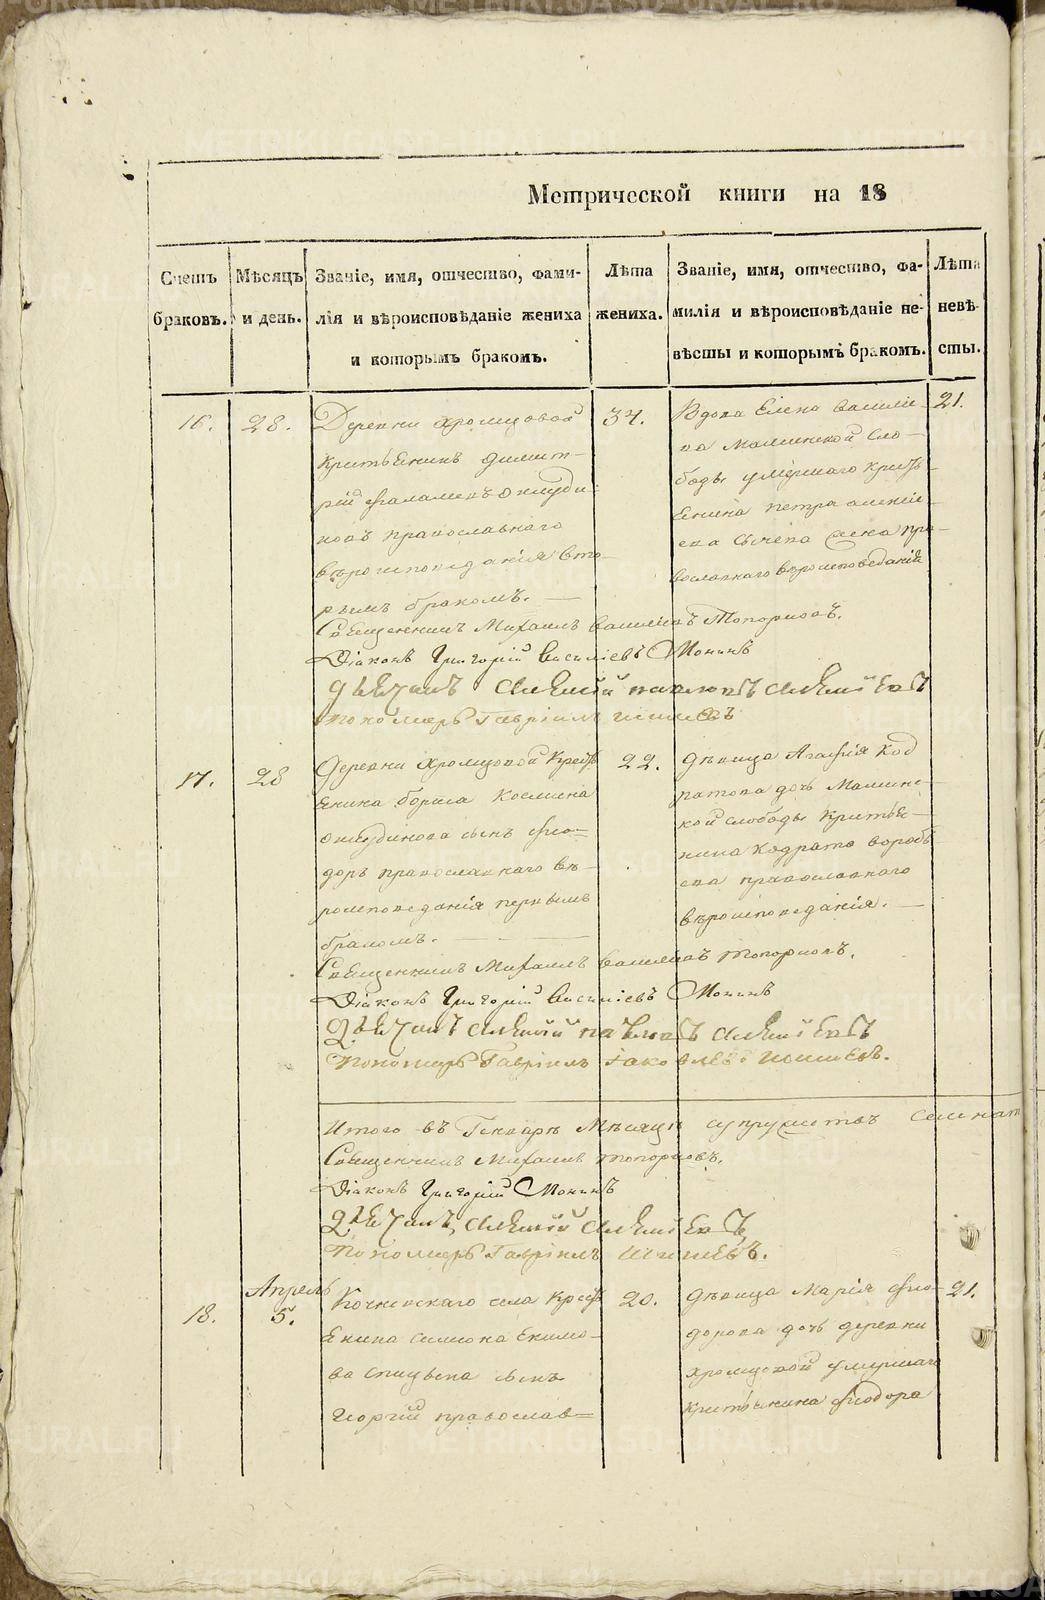 Метрической книги на 18
Счетъ
браковъ.
Мѣсяцъ
и день.
Званіе, имя, отчество, фами-
лія и вѣроисповѣданіе жениха
и которымъ бракомъ.
Лѣта
жениха.
Званіе, имя, отчество, фа-
милія и вѣроисповѣданіе не-
вѣсты и которымъ бракомъ.
Лѣта
невѣ-
сты.
16.
28.
Деревни Хромцовой
Критьенинъ Димит-
рій
новъ православнаго
вѣроисповеданія вто-
рымъ бракомъ.
34.
Вдова Елена Василіе-
ва Маминской Сло-
боды умершаго крить-
енина Петра Алексіе-
ева жена пра-
вославнаго вѣроисповеданія
21.
Священникъ Михаилъ Василіевъ Топорковъ.
Діаконъ Григорій Василіевъ Монинъ
Дьечакъ Алексій Павловъ Алексіевъ
Пономарь Гавріилъ
17.
28
Деревни Хромцовой крест
енина Бориса Космина
сынъ Фео=
доръ православнаго вѣ-
роисповедания первымъ
бракомъ.
22.
Дѣвица Агафія Код
ратова дочь Маминс-
кой слободы критье-
нина Кодрата Вороб-
ева православнаго
вѣроисповедания.
Священникъ Михаилъ Василіевъ Топорковъ.
Діаконъ Григорій Василіевъ Монинъ
Дьечакъ Алексій Павловъ Алексіевъ
Пономарь Гавріилъ Іаковлевъ
Итого въ Генварѣ Мѣсяцѣ супружствъ семнат
Священникъ Михаилъ Топорковъ.
Діаконъ Григорій Монинъ
Дьечакъ Алексій Алексіевъ
Пономарь Гавріилъ
18.
Апрель
5.
села крест
енина Симиона Екимо-
ва сынъ
Георгій православ=
20.
Дѣвица Марія Фео-
дорова дочь деревни
Хромцовой умершаго
критьенина Феодора
21.